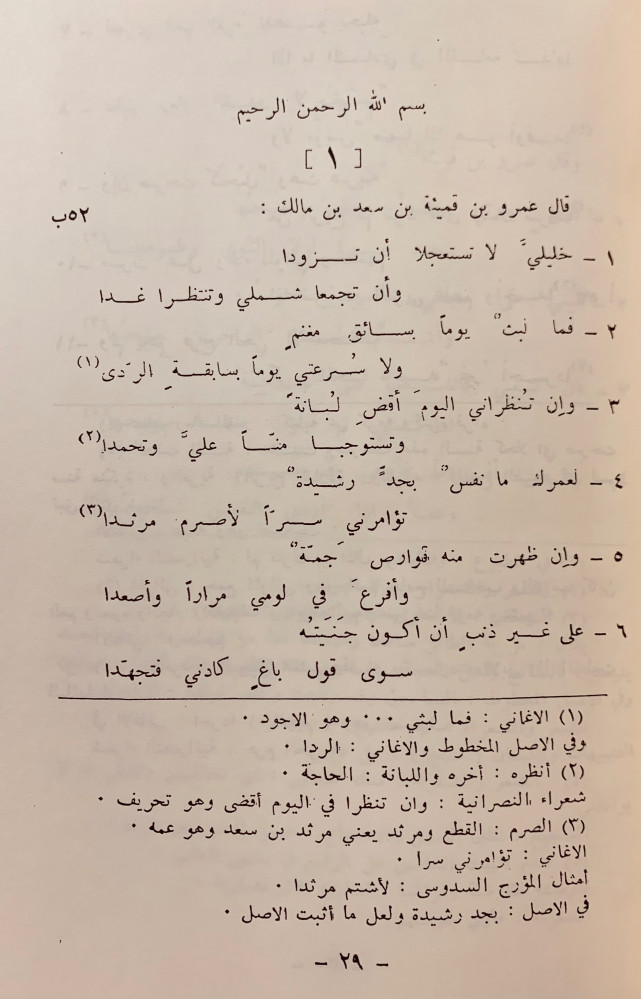 بسم الله الرحمن الرحيم
[ ١ ]
قال عمرو بن قميئة بن سعد بن مالك : ٥٢ب
١ – خليليَّ لا تستعجلا أن تزودا
وأن تجمعا شملي وتنتظرا غدا
٢ – فما لبثٌ يوماً بسائق مغنمٍ
ولا سُرعتي يوماً بسابقةِ الرّدى(١)
٣ – وإن تُنظراني اليومَ أقضِ لُبانةً
وتستوجبا منّاً عليَّ وتحمدا(٢)
٤ – لعمرك ما نفسٌ بجدٍّ رشيدةٌ
تؤامرني سرّاً لأصرم مرثدا(٣)
٥ – وإن ظهرت منه قوارص جَمّةٌ
وأفرعَ في لومي مراراً وأصعدا
٦ – على غير ذنبٍ أن أكون جَنَيتُه
سوى قول باغٍ كادني فتجهّدا
(١) الاغاني : فما لبثي ٠٠٠ وهو الاجود ٠
وفي الاصل المخطوط والاغاني : الردا ٠
(٢) أنظره : أخره واللبانة : الحاجة ٠
شعراء النصرانية : وان تنظرا في اليوم أقضى وهو تحريف ٠
(٣) الصرم : القطع ومرثد يعني مرثد بن سعد وهو عمه ٠
الاغاني : تؤامرني سرا ٠
أمثال المؤرج السدوسى : لأشتم مرثدا ٠
في الاصل : بجد رشيدة ولعل ما أثبت الاصل ٠
– ٢٩ –